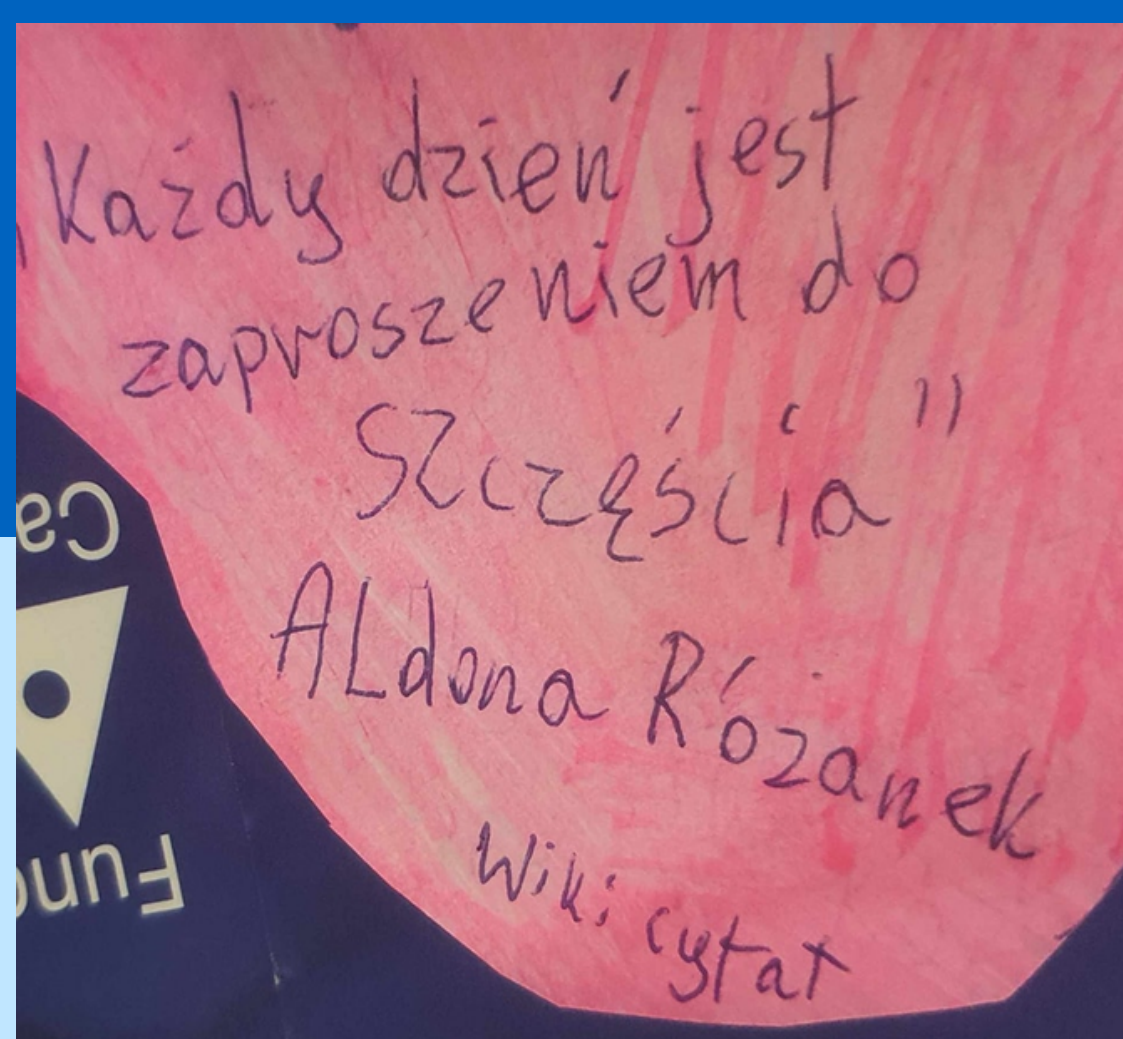 „Każdy dzień jest
zaproszeniem do
szczęścia”
ALdona Różanek
Wiki cytat
Ca
Fun